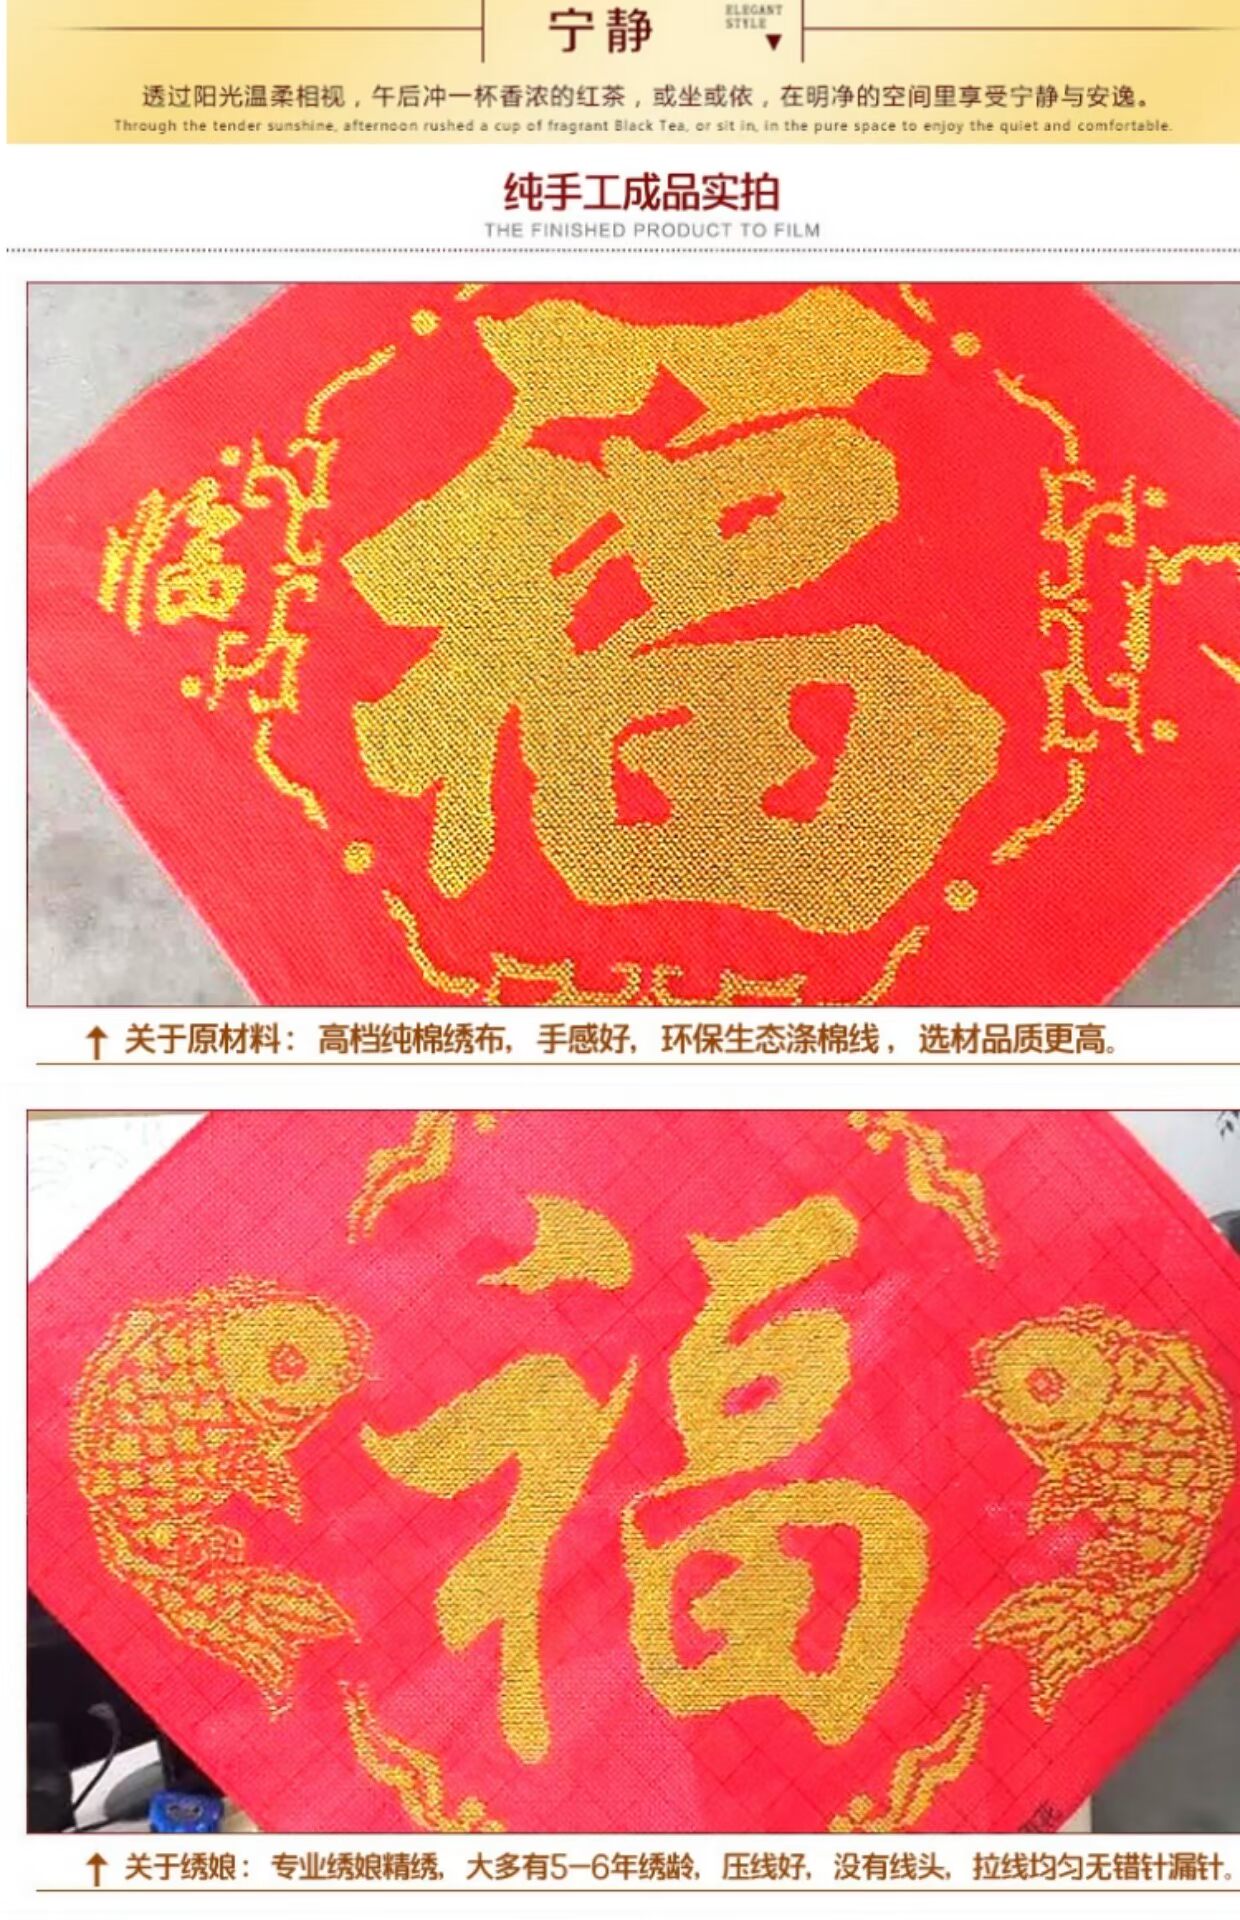 宁静
ELEGANT
STYLE
透过阳光温柔相视，午后冲一杯香浓的红茶，或坐或依，在明净的空间里享受宁静与安逸。
Through the tender sunshine, afternoon rushed a cup of fragrant Black Tea, or sit in, in the pure space to enjoy the quiet and comfortable.
纯手工成品实拍
THE FINISHED PRODUCT TO FILM
福
关于原材料： 高档纯棉绣布, 手感好, 环保生态涤棉线， 选材品质更高。
福
关于绣娘： 专业绣娘精绣, 大多有5-6年绣龄, 压线好, 没有线头, 拉线均匀无错针漏针。